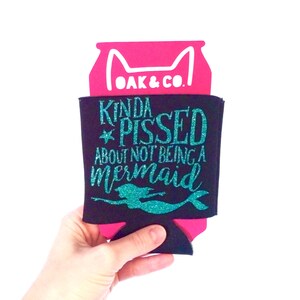 OAK & CO.
KINDA
PISSED
ABOUT NOT BEING A
mermaid